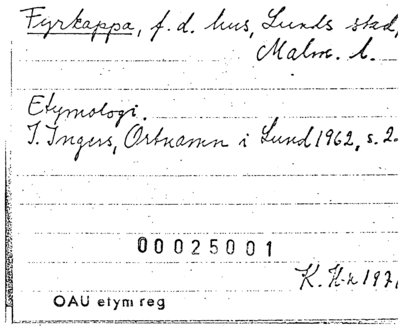 Fyrkappa, f.d. hus, Lunds stad,
Malm. l.
Etymologi.
I. Ingers, Ortnamn i Lund 1962, s. 2.
00025001
K. H-n 197
OAU etym reg